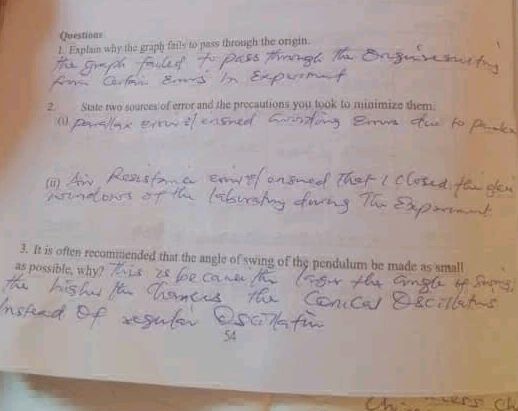 Questions
1. Explain why the graph fails to pass through the origin.
the graph failed to pass through the Origin resulting
from Certain Errors In Experiment
2. State two sources of error and the precautions you took to minimize them.
(i) parallax error I ensured Avoiding Errors due to
(ii) Air Resistance error I ensured That I closed the
windows of the laboratory during The Experiment
3. It is often recommended that the angle of swing of the pendulum be made as small
as possible, why? This is because the larger the angle of Swing,
the higher the Chances the Conical Oscillations
Instead Of regular Oscillation
54